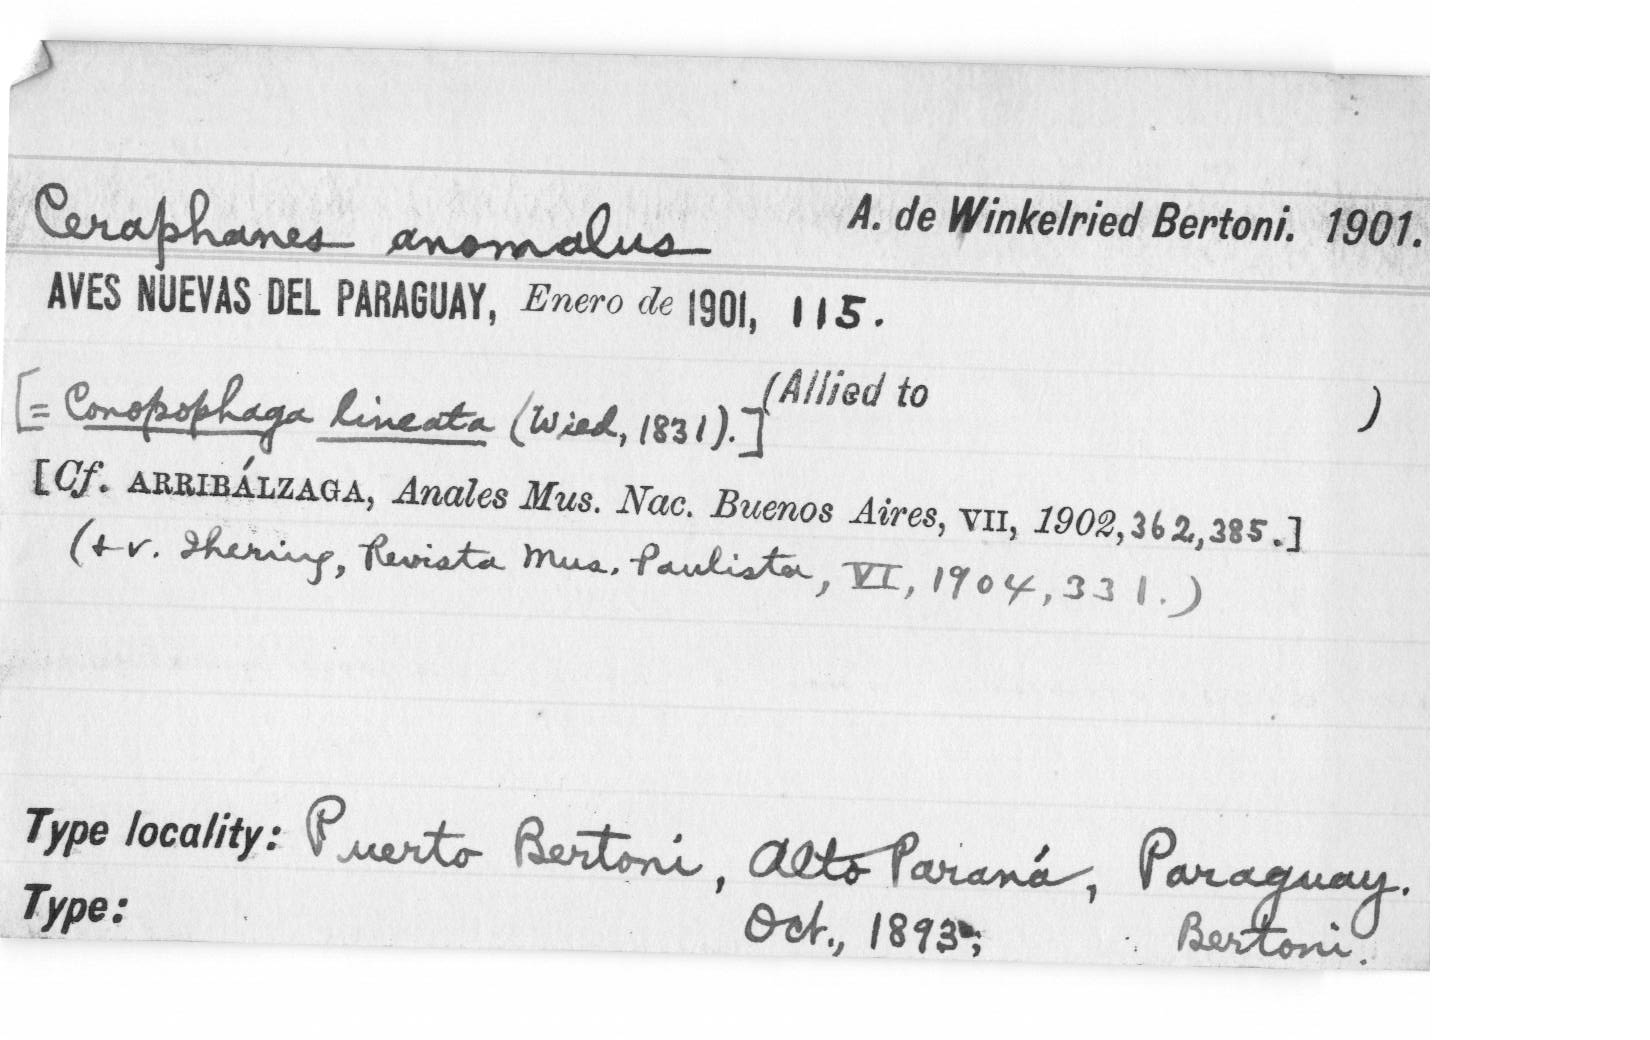 Ceraphanes anomalus A. de Winkelried Bertoni. 1901.
AVES NUEVAS DEL PARAGUAY, Enero de 1901, 115.
(Allied to )
[= Conopophaga lineata (Wied, 1831).]
[Cf. ARRIBÁLZAGA, Anales Mus. Nac. Buenos Aires, VII, 1902, 362, 385.]
(& v. Ihering, Revista Mus. Paulista, VI, 1904, 331.)
Type locality: Puerto Bertoni, Alto Paraná, Paraguay.
Type: Oct., 1893; Bertoni.